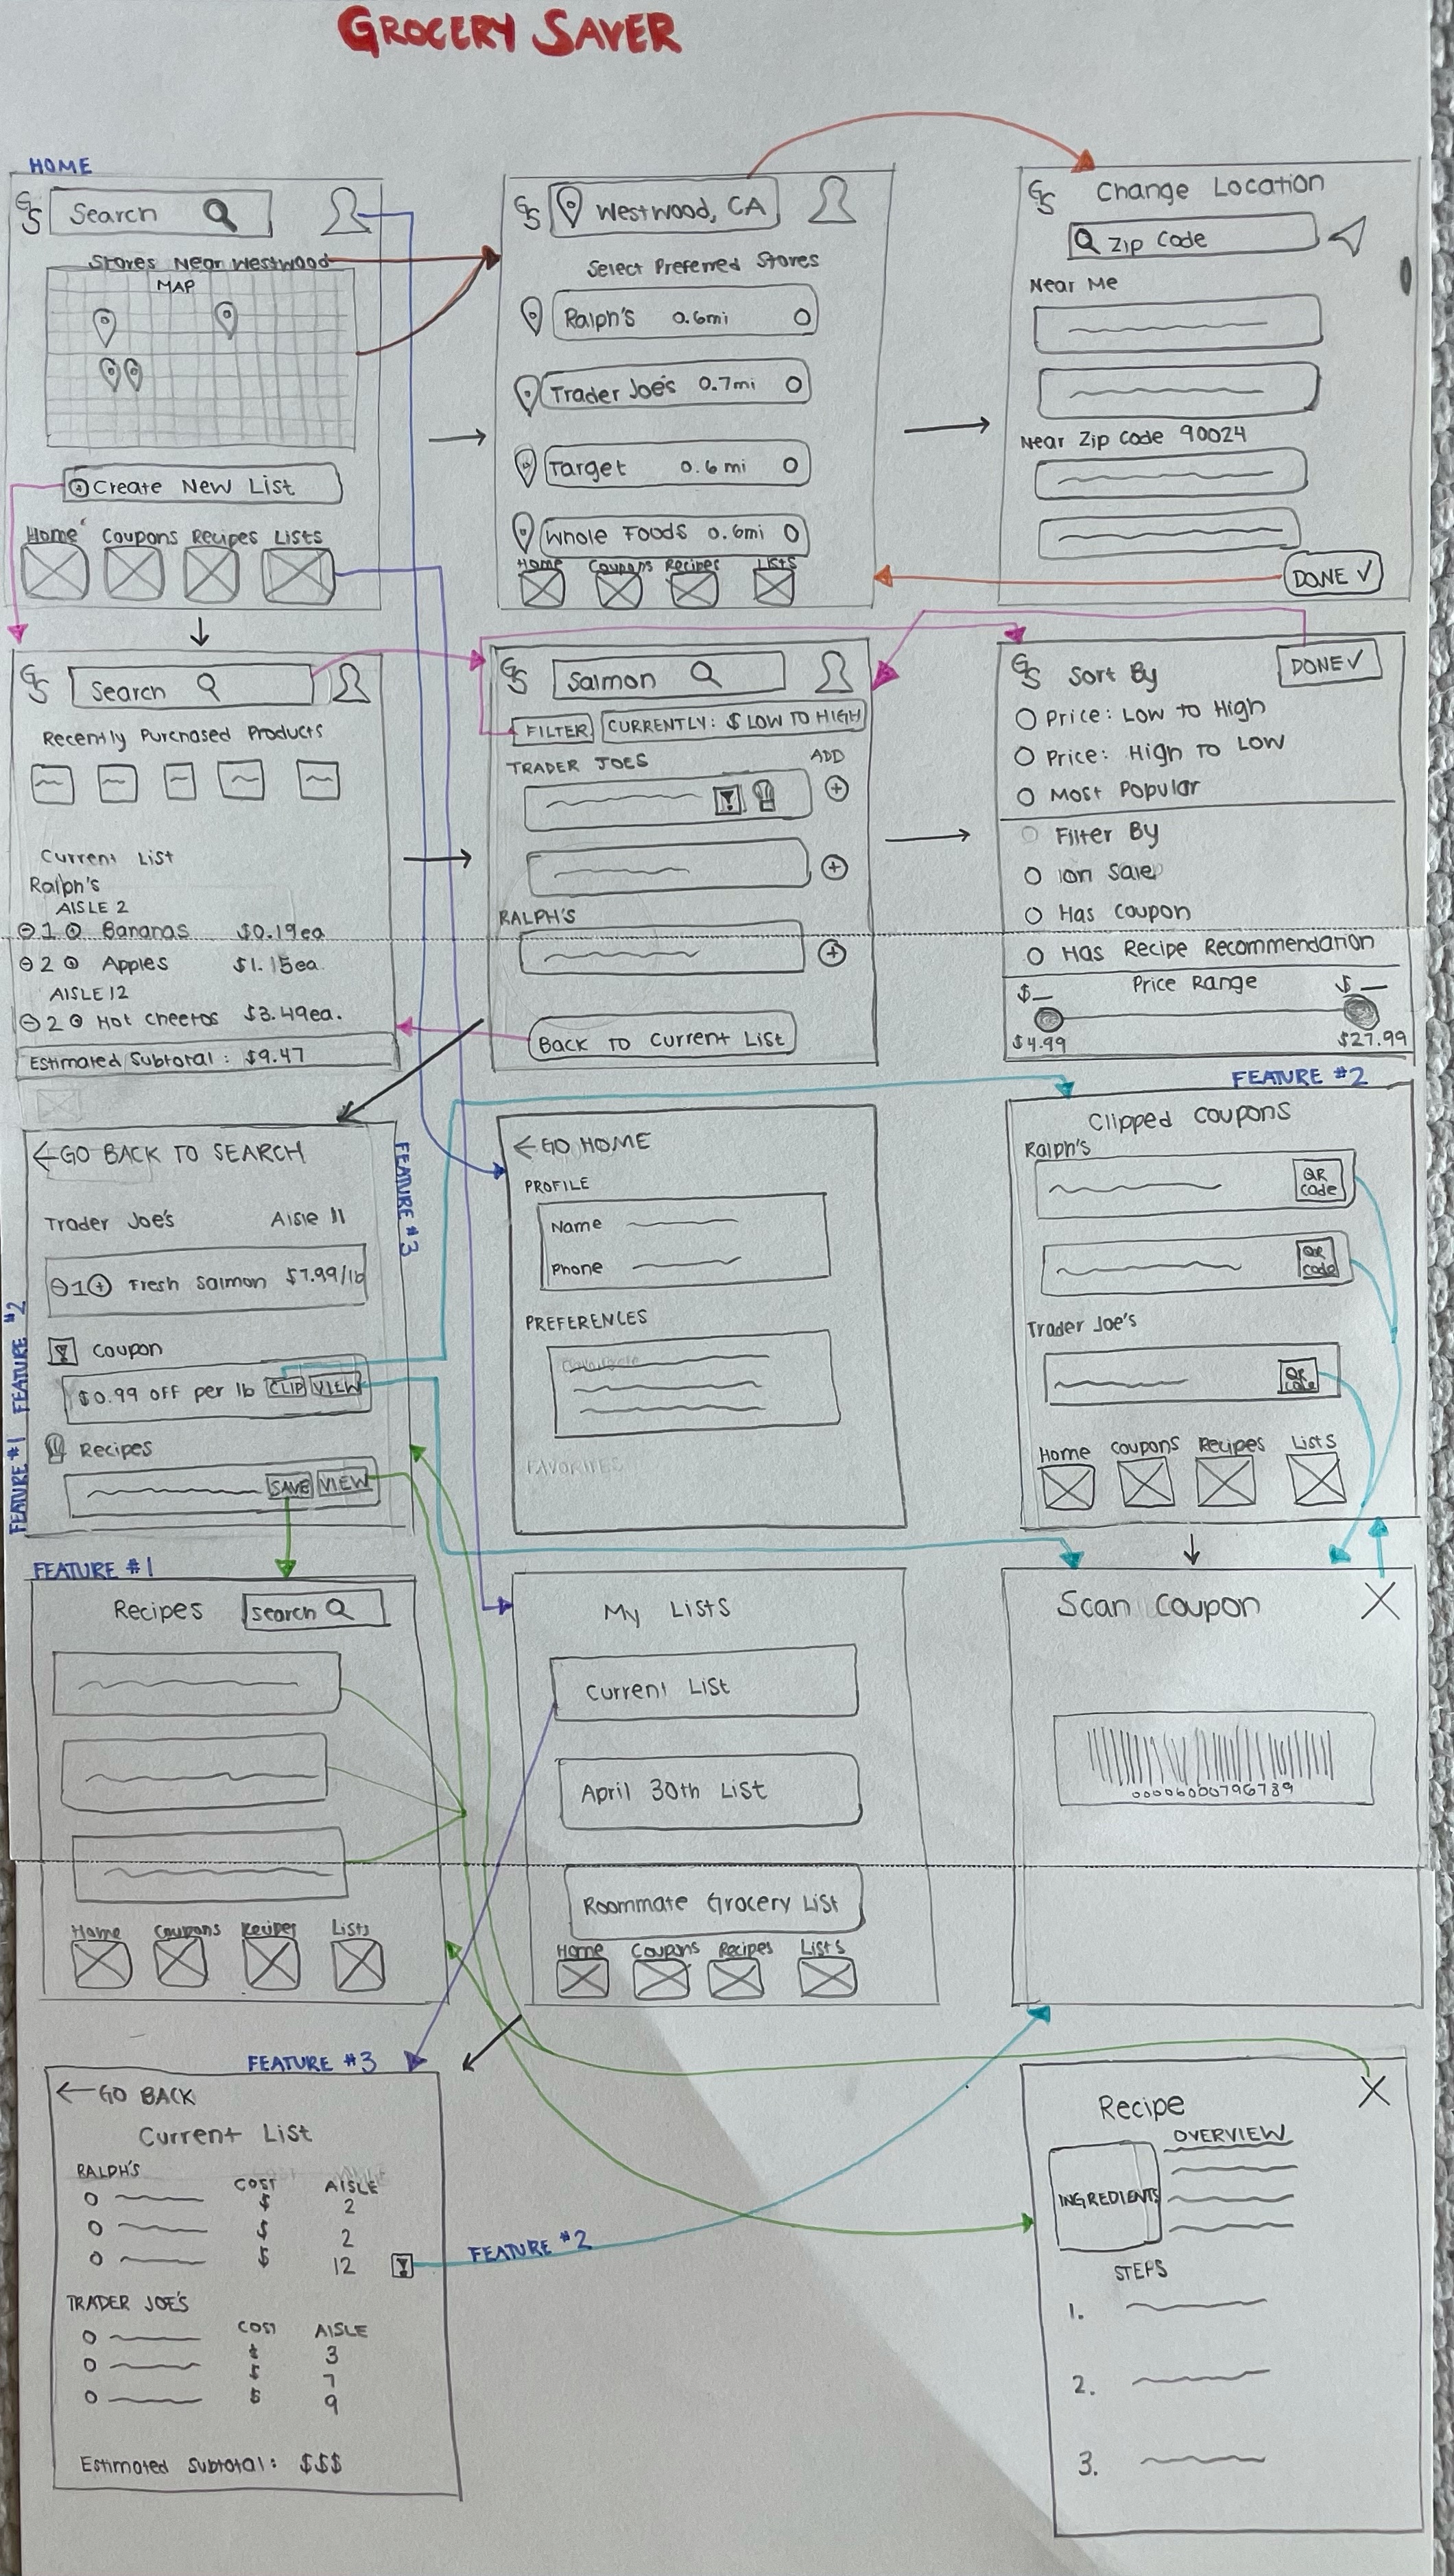 GROCERY SAVER
HOME
GS Search
Stores Near Westwood
MAP
Create New List
Home Coupons Recipes Lists
GS Westwood, CA
Select Preferred Stores
Ralph's 0.6mi
Trader Joe's 0.7mi
Target 0.6mi
Whole Foods 0.6mi
Home Coupons Recipes Lists
GS Change Location
Zip Code
Near Me
Near Zip Code 90024
DONE ✓
GS Search
Recently Purchased Products
Current List
Ralph's
AISLE 2
⊖ 1 ⊕ Bananas $0.19ea
⊖ 2 ⊕ Apples $1.15ea.
AISLE 12
⊖ 2 ⊕ Hot Cheetos $3.49ea.
Estimated Subtotal: $9.47
GS Salmon
FILTER CURRENTLY: $ LOW TO HIGH
TRADER JOES ADD
RALPH'S
Back To Current List
GS Sort By DONE ✓
Price: Low to High
Price: High to Low
Most Popular
Filter By
on Sale
Has Coupon
Has Recipe Recommendation
$_ Price Range $_
$4.99 $27.99
←GO BACK TO SEARCH
Trader Joe's Aisle 11
⊖1⊕ Fresh Salmon $7.99/lb
Coupon
$0.99 off per lb CLIP VIEW
Recipes
SAVE VIEW
FEATURE #1 FEATURE #2
FEATURE #3
←GO HOME
PROFILE
Name
Phone
PREFERENCES
FAVORITES
FEATURE #2
Clipped Coupons
Ralph's
QR code
QR code
Trader Joe's
QR code
Home Coupons Recipes Lists
FEATURE #1
Recipes Search
Home Coupons Recipes Lists
My Lists
Current List
April 30th List
Roommate Grocery List
Home Coupons Recipes Lists
Scan Coupon X
FEATURE #3
←GO BACK
Current List
RALPH'S
COST AISLE
$ 2
$ 2
$ 12
FEATURE #2
TRADER JOE'S
COST AISLE
$ 3
$ 7
$ 9
Estimated Subtotal: $$$
Recipe X
OVERVIEW
INGREDIENTS
STEPS
1.
2.
3.